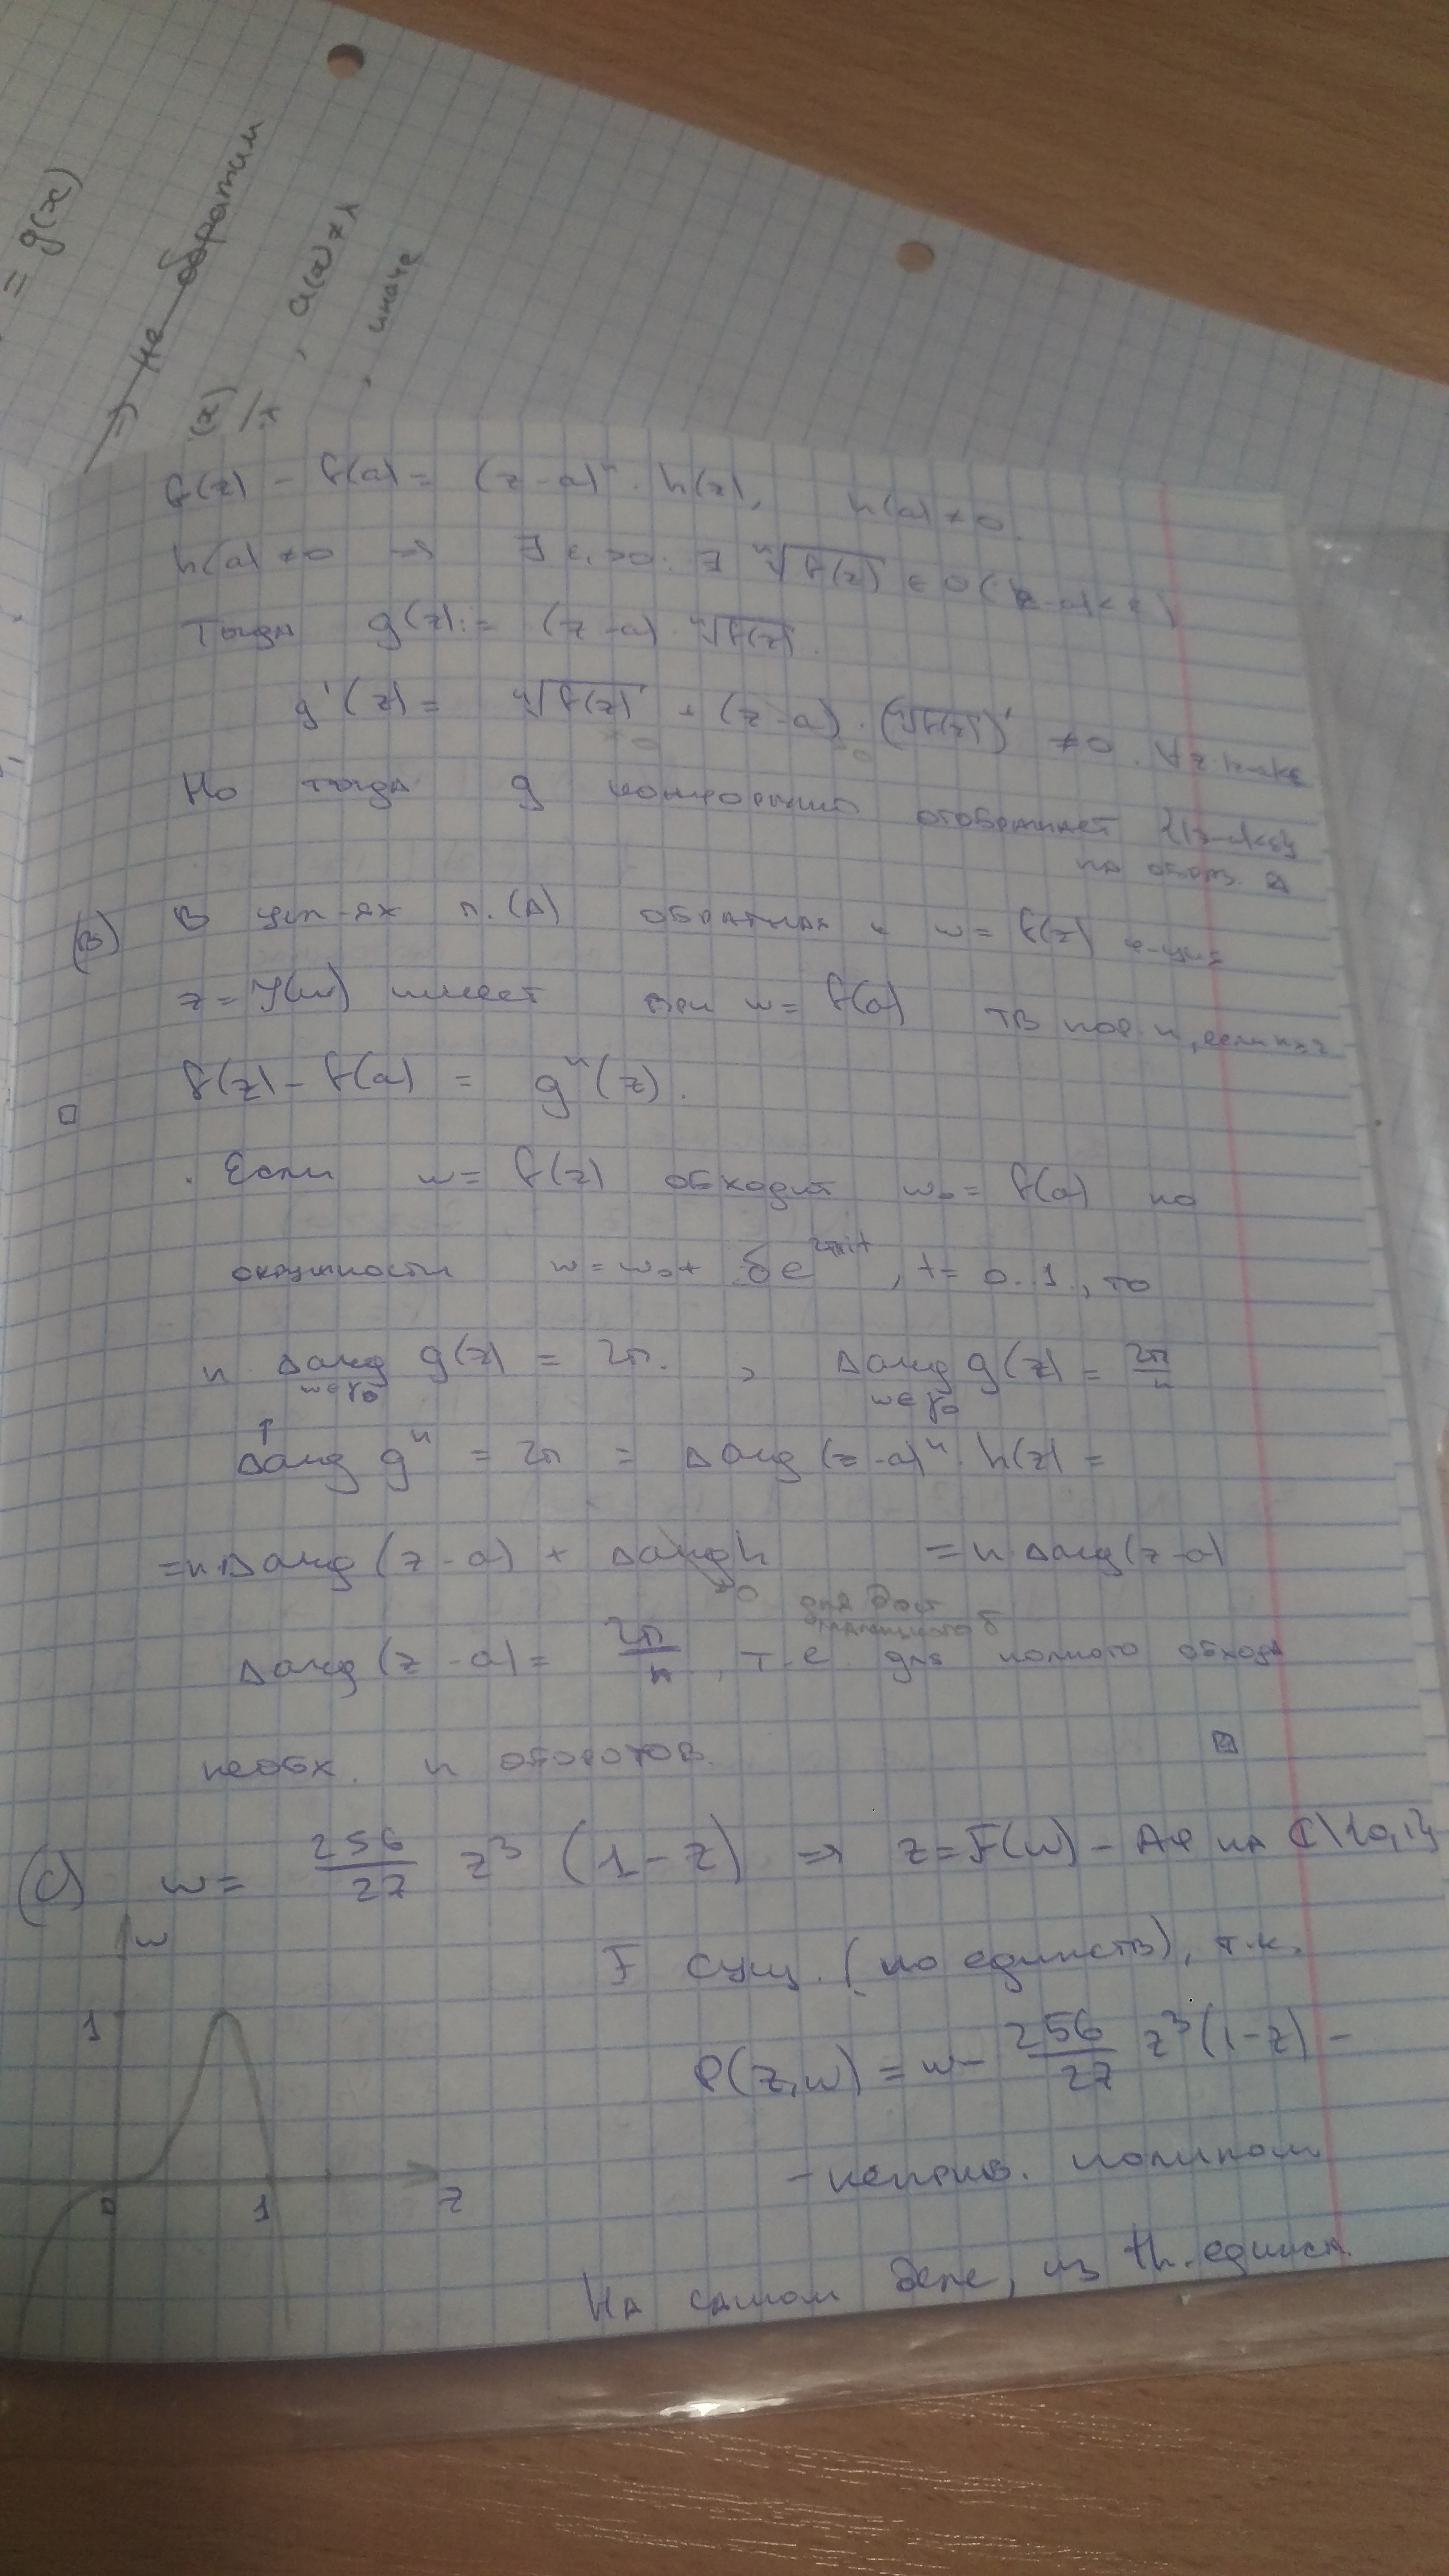 = g(x)
⇒ не обратим
, a(x) ≠ λ
, иначе
f(z) - f(a) = (z-a)ⁿ · h(z), h(a) ≠ 0
h(a) ≠ 0 ⇒ ∃ ε₁ > 0: ∃ ⁿ√f(z) ∈ O(|z-a|<ε)
Тогда g(z) := (z-a) · ⁿ√f(z).
g'(z) = ⁿ√f(z) + (z-a) · (ⁿ√f(z))' ≠ 0. ∀z: |z-a|<ε
≠0 →0
Но тогда g конформно отображает {|z-a|<ε}
на окр. 
(B) В усл-ях п. (A) обратная к w = f(z) ф-ция
z = φ(w) имеет при w = f(a) ТВ пор. n, если n≥2
□ f(z) - f(a) = gⁿ(z).
. Если w = f(z) обходит w₀ = f(a) по
окружности w = w₀ + δe^{2πit}, t = 0..1, то
n Δarg g(z) = 2π. , Δarg g(z) = 2π/n
w∈γδ w∈γδ
↑
Δarg gⁿ = 2π = Δarg (z-a)ⁿ · h(z) =
= n·Δarg (z-a) + Δarg h = n·Δarg(z-a)
=0 для дост. малого δ
Δarg (z-a) = 2π/n, т.е. для полного обхода
необх. n оборотов.
(C) w = 256/27 z³ (1-z) ⇒ z = F(w) - АФ на ℂ\{0,1}
w
F сущ. (по единств), т.к.
1
P(z,w) = w - 256/27 z³(1-z) -
0 1 z
- неприв. полином
На самом деле, из th. единст.